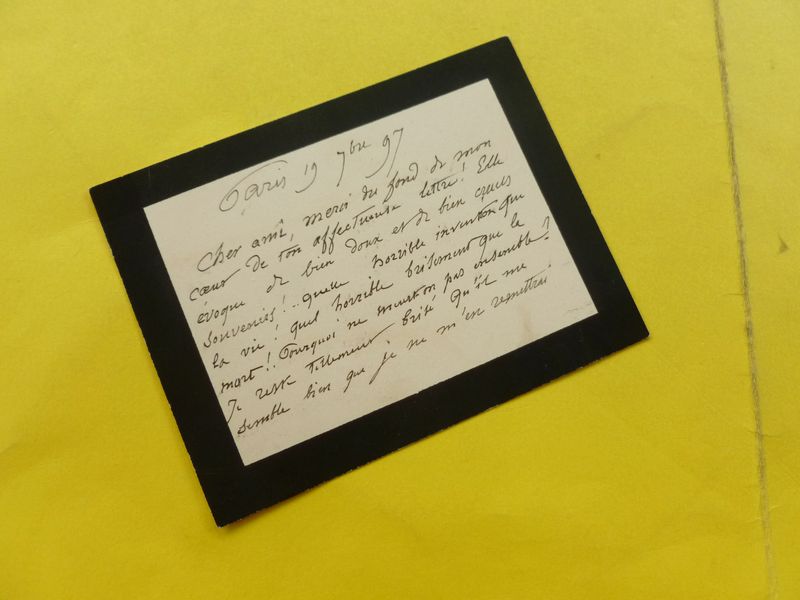 Paris 19 7bre 97
Cher ami, merci du fond de mon
cœur de ton affectueuse lettre! Elle
évoque de bien doux et de bien cruels
souvenirs!.. Quelle horrible invention que
la vie! quel horrible brisement que la
mort!! Pourquoi ne meurt on pas ensemble?
Je reste tellement brisé qu'il me
semble bien que je ne m'en remettrai